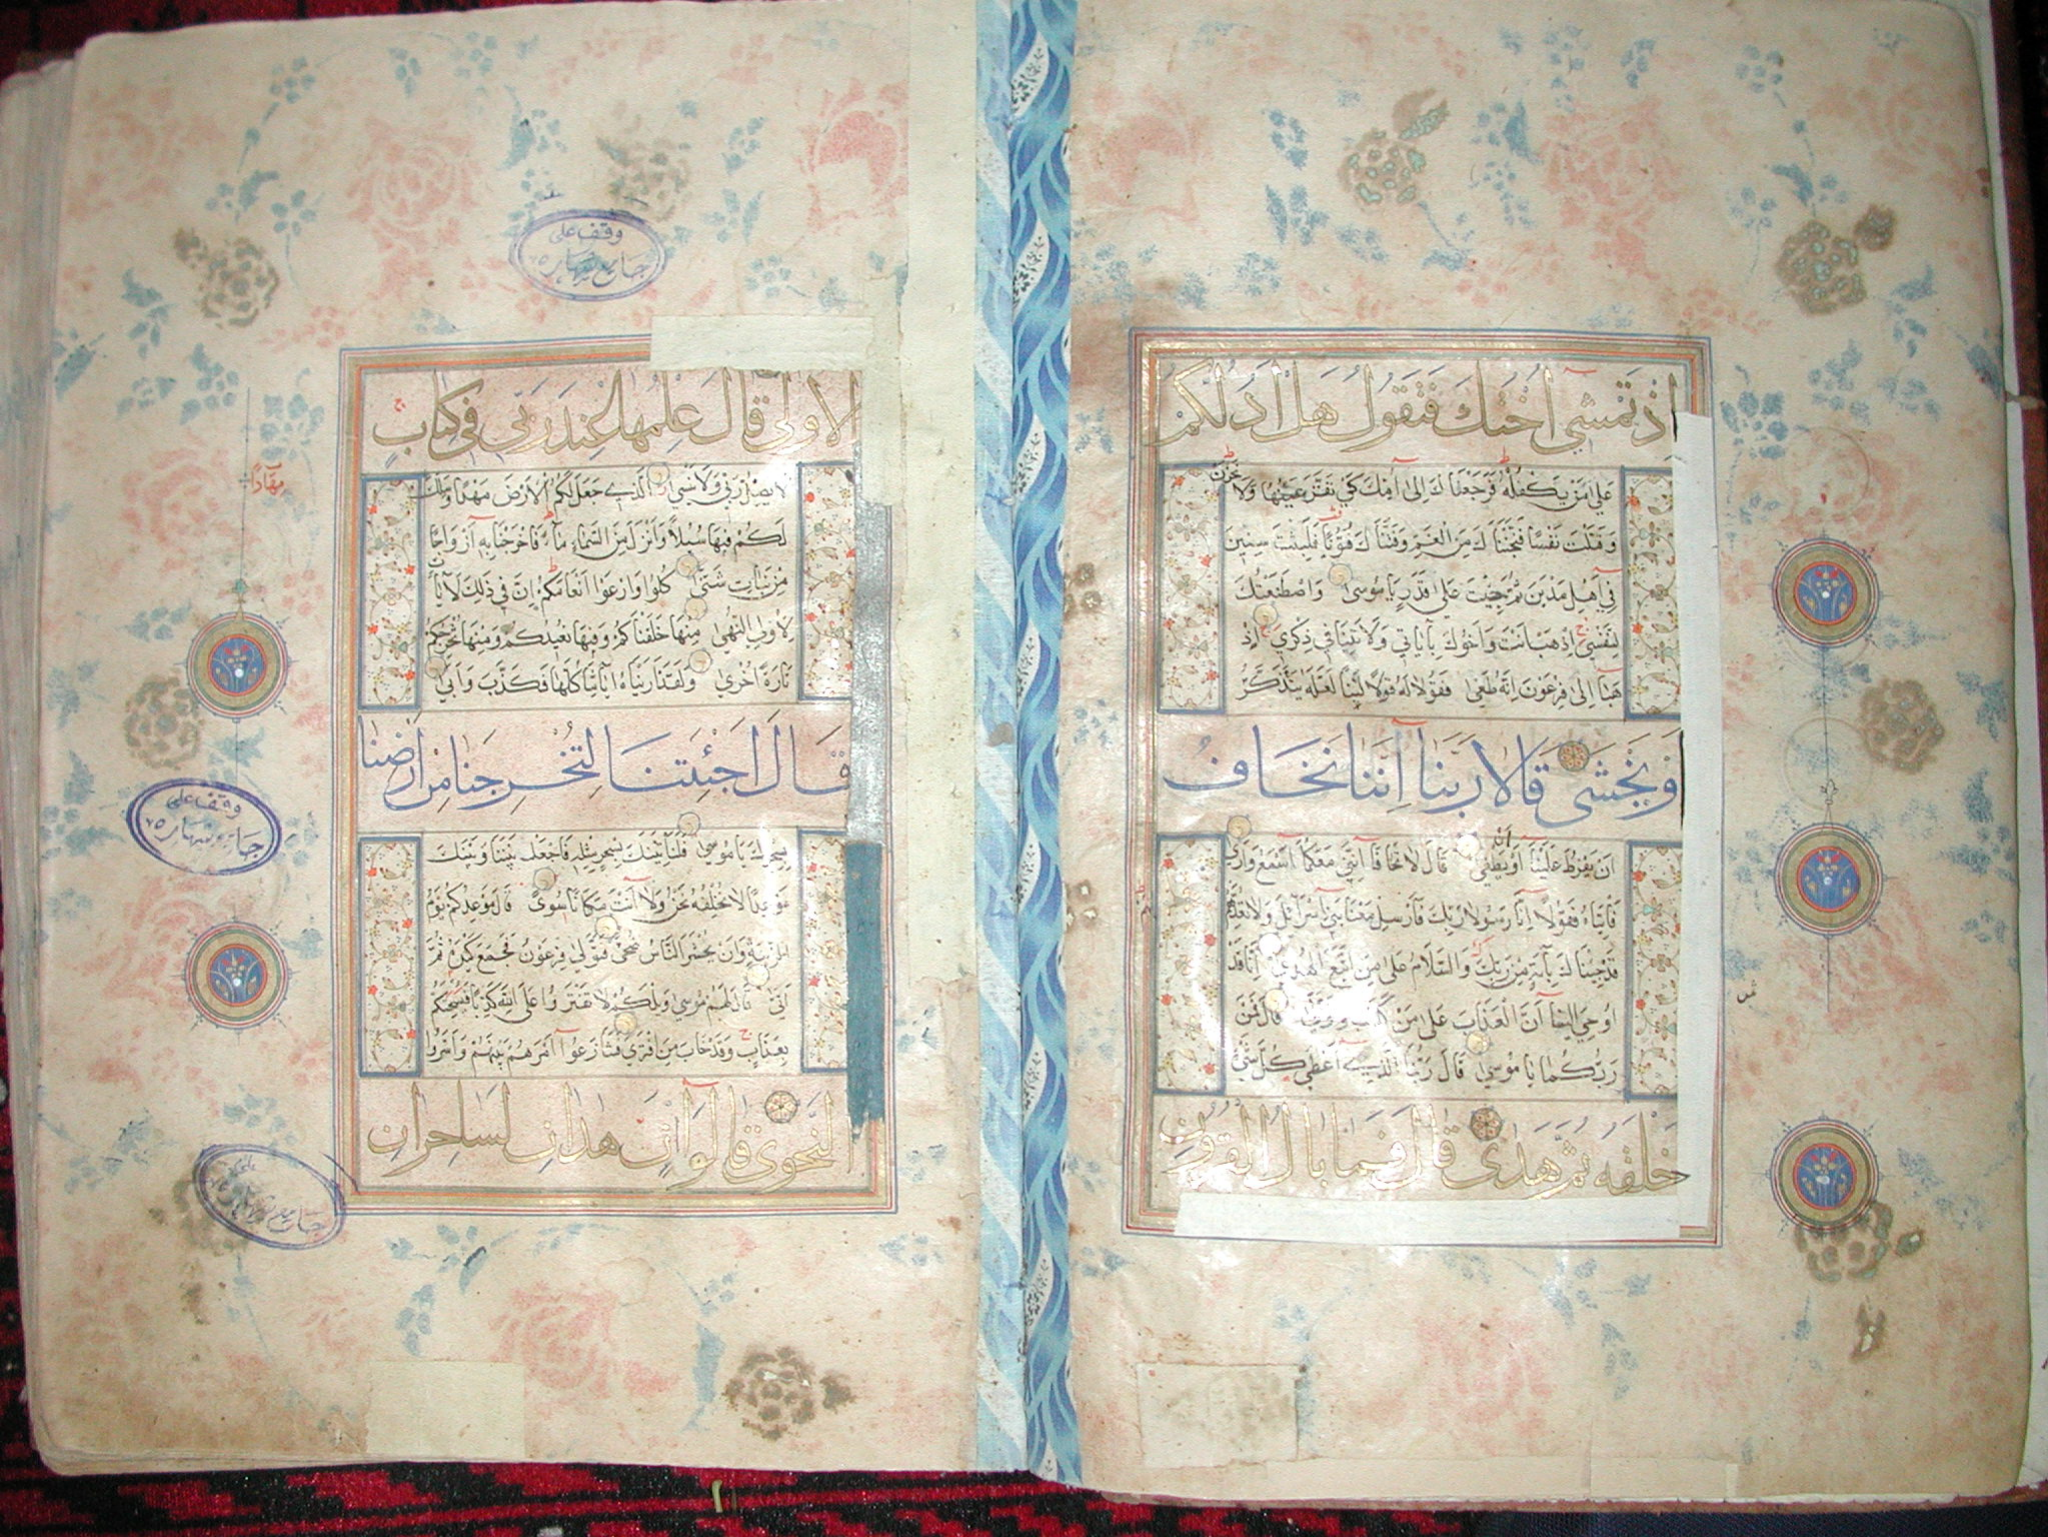 اذ تمشي اختك فتقول هل ادلكم
على من يكفله فرجعناك الى امك كي تقر عينها ولا تحزن
وقتلت نفسا فنجيناك من الغم وفتناك فتونا فلبثت سنين
في اهل مدين ثم جئت على قدر يا موسى واصطنعتك
لنفسي اذهب انت واخوك بآياتي ولا تنيا في ذكري اذ
هبا الى فرعون انه طغى فقولا له قولا لينا لعله يتذكر
او يخشى قالا ربنا اننا نخاف
ان يفرط علينا او ان يطغى قال لا تخافا انني معكما اسمع وارى
فاتياه فقولا انا رسولا ربك فارسل معنا بني اسرآئل ولا تعذبهم
قد جئناك بآية من ربك والسلام على من اتبع الهدى انا قد
اوحي الينا ان العذاب على من كذب وتولى قال فمن
ربكما يا موسى قال ربنا الذي اعطى كل شئ
خلقه ثم هدى قال فما بال القرون
ثمن
وقف على
جامع
الاولى قال علمها عند ربي في كتاب
لا يضل ربي ولا ينسى الذي جعل لكم الارض مهدا وسلك
مهادا
لكم فيها سبلا وانزل من السماء ماء فاخرجنا به ازواجا
من نبات شتى كلوا وارعوا انعامكم ان في ذلك لآيات
لاولي النهى منها خلقناكم وفيها نعيدكم ومنها نخرجكم
تارة اخرى ولقد اريناه آياتنا كلها فكذب وابى
قال اجئتنا لتخرجنا من ارضنا
وقف على
بسحرك يا موسى فلناتينك بسحر مثله فاجعل بيننا وبينك
موعدا لا نخلفه نحن ولا انت مكانا سوى قال موعدكم يوم
الزينة وان يحشر الناس ضحى فتولى فرعون فجمع كيده ثم
اتى قال لهم موسى ويلكم لا تفتروا على الله كذبا فيسحتكم
بعذاب وقد خاب من افترى فتنازعوا امرهم بينهم واسروا
النجوى قالوا ان هذان لساحران